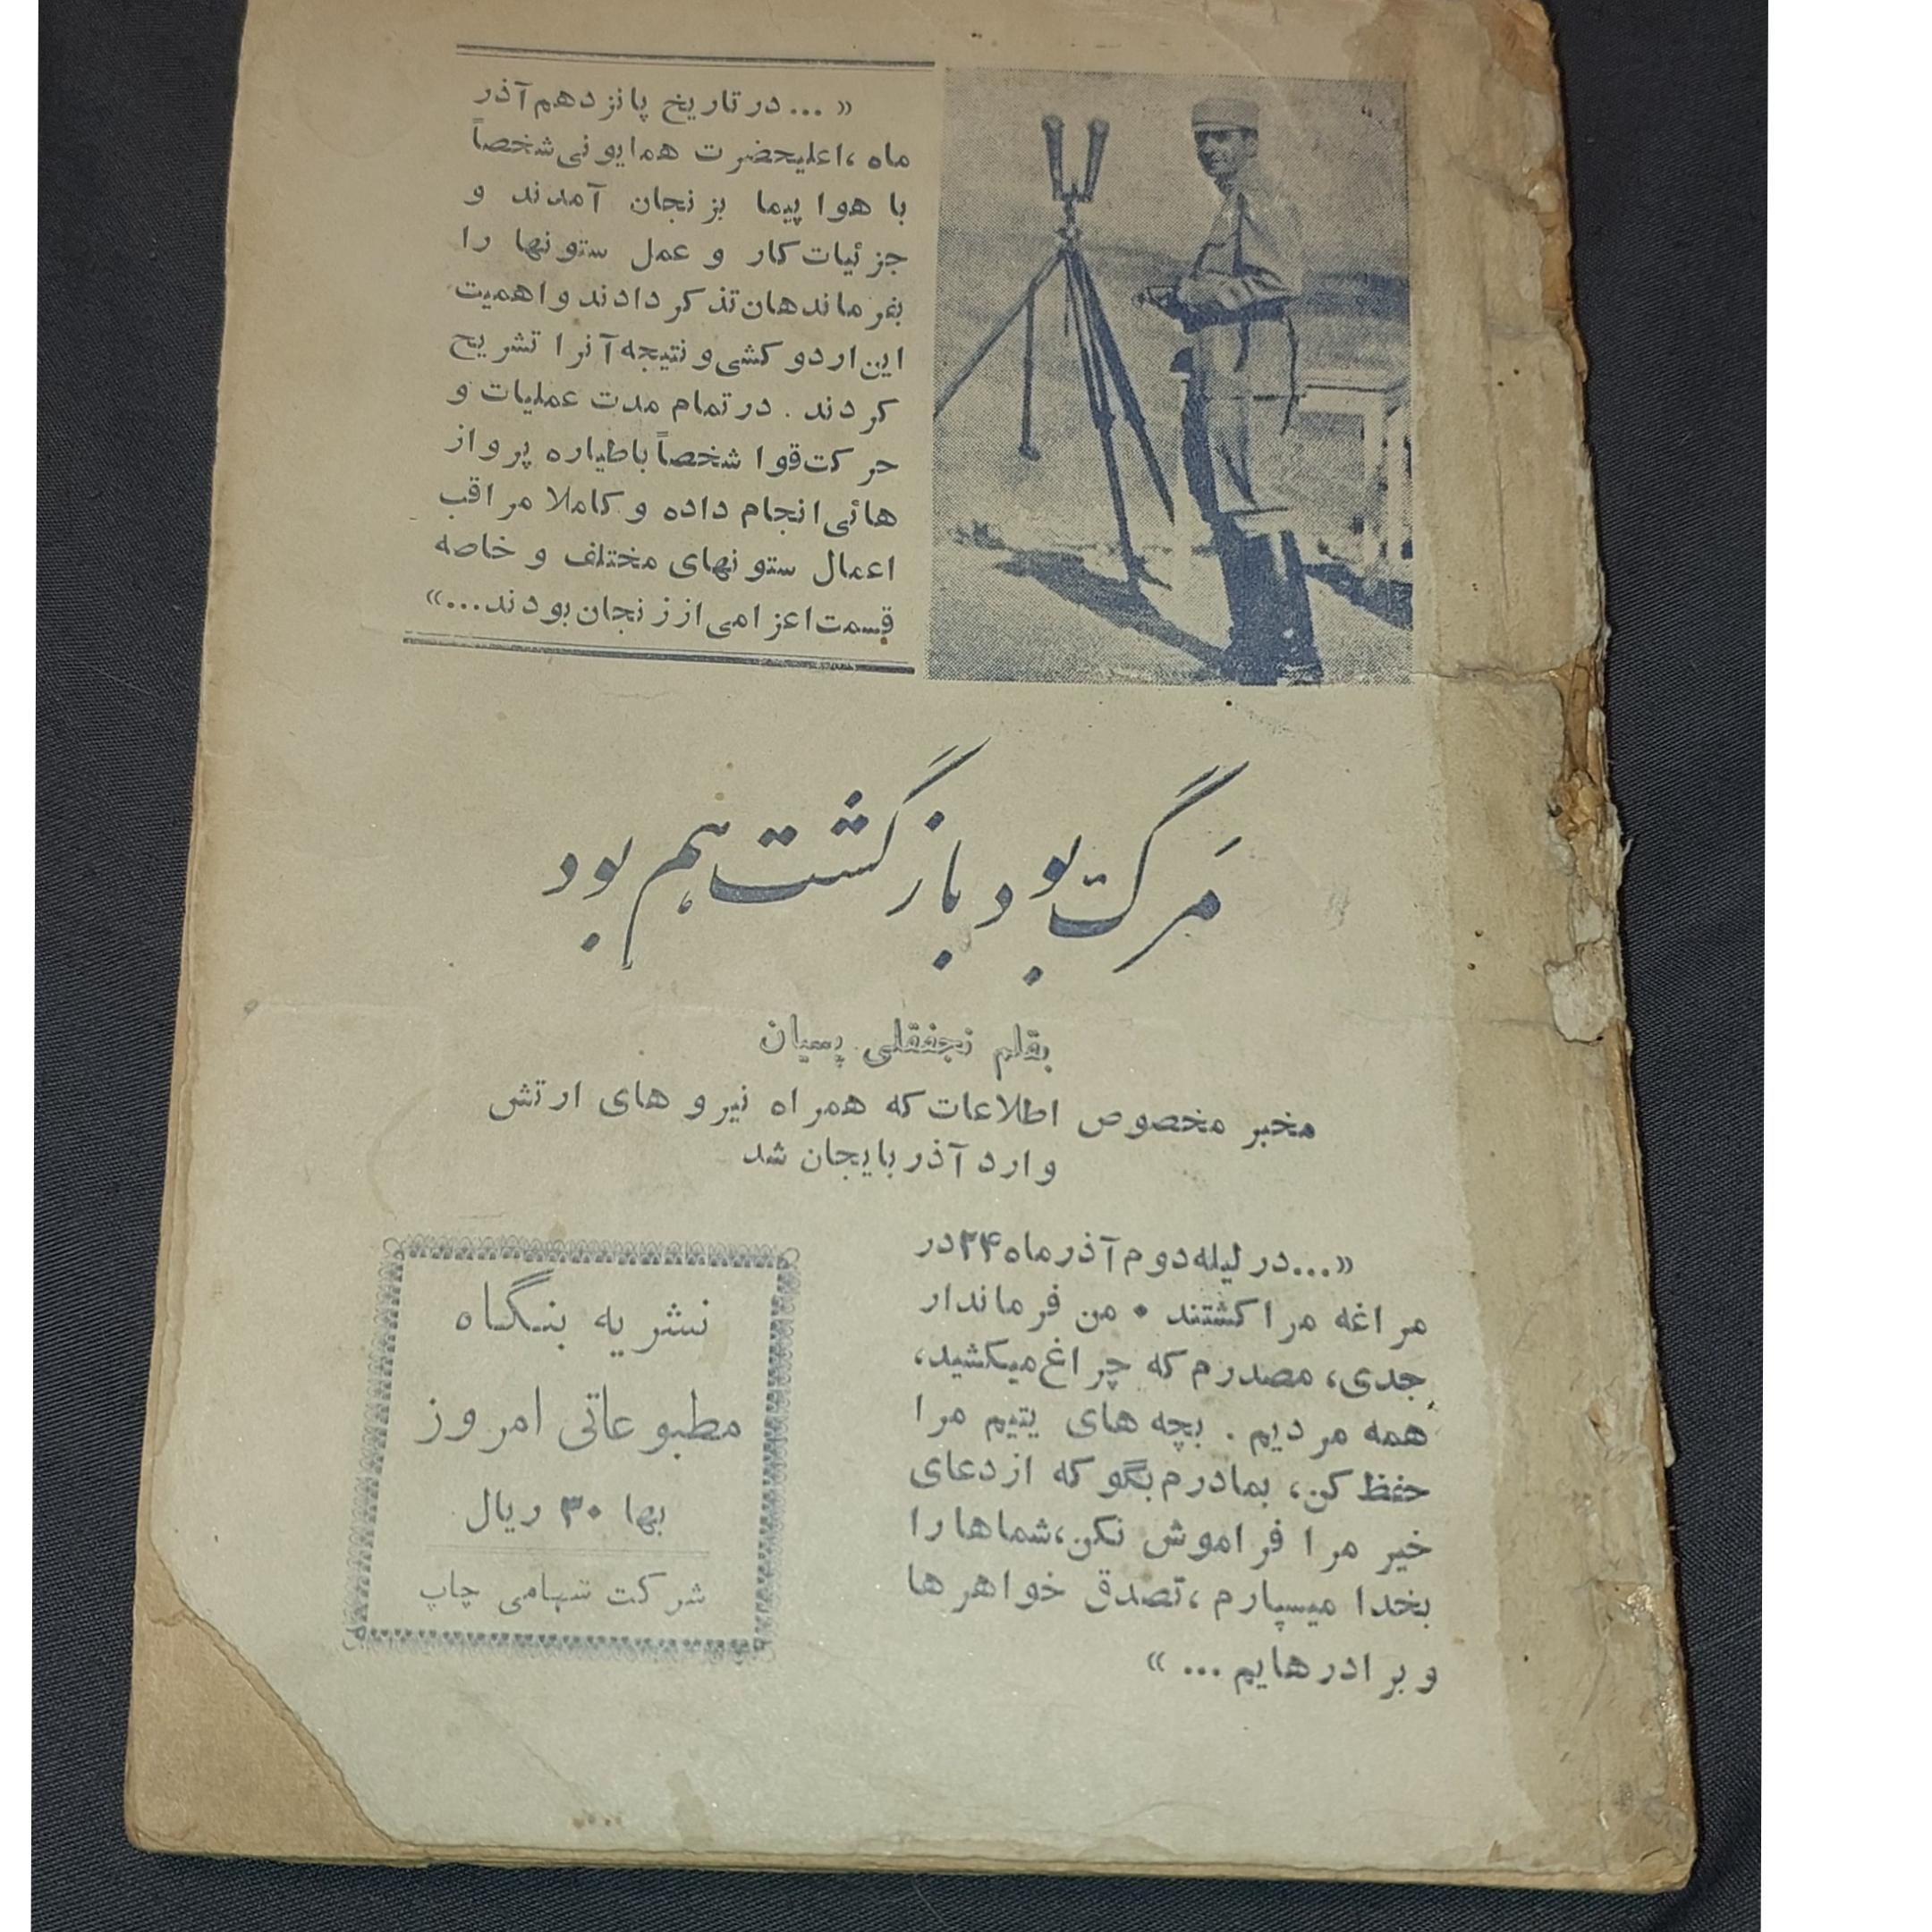 «...در تاریخ پانزدهم آذر
ماه ،اعلیحضرت همایونی شخصاً
با هواپیما بزنجان آمدند و
جزئیات کار و عمل ستونها را
بفرماندهان تذکر دادند و اهمیت
این اردو کشی و نتیجه آنرا تشریح
کردند . در تمام مدت عملیات و
حرکت قوا شخصاً باطیاره پرواز
هائی انجام داده و کاملا مراقب
اعمال ستونهای مختلف و خاصه
قسمت اعزامی از زنجان بودند...»
مرگ بود بازگشت هم بود
بقلم نجفقلی پسیان
مخبر مخصوص اطلاعات که همراه نیرو های ارتش
وارد آذربایجان شد
«...در لیله دوم آذرماه ۲۴ در
مراغه مرا کشتند • من فرماندار
جدی، مصدرم که چراغ میکشید،
همه مردیم . بچه های یتیم مرا
حفظ کن، بمادرم بگو که از دعای
خیر مرا فراموش نکن،شماها را
بخدا میسپارم ،تصدق خواهرها
و برادرهایم ... »
نشریه بنگاه
مطبوعاتی امروز
بها ۳۰ ریال
شرکت سهامی چاپ